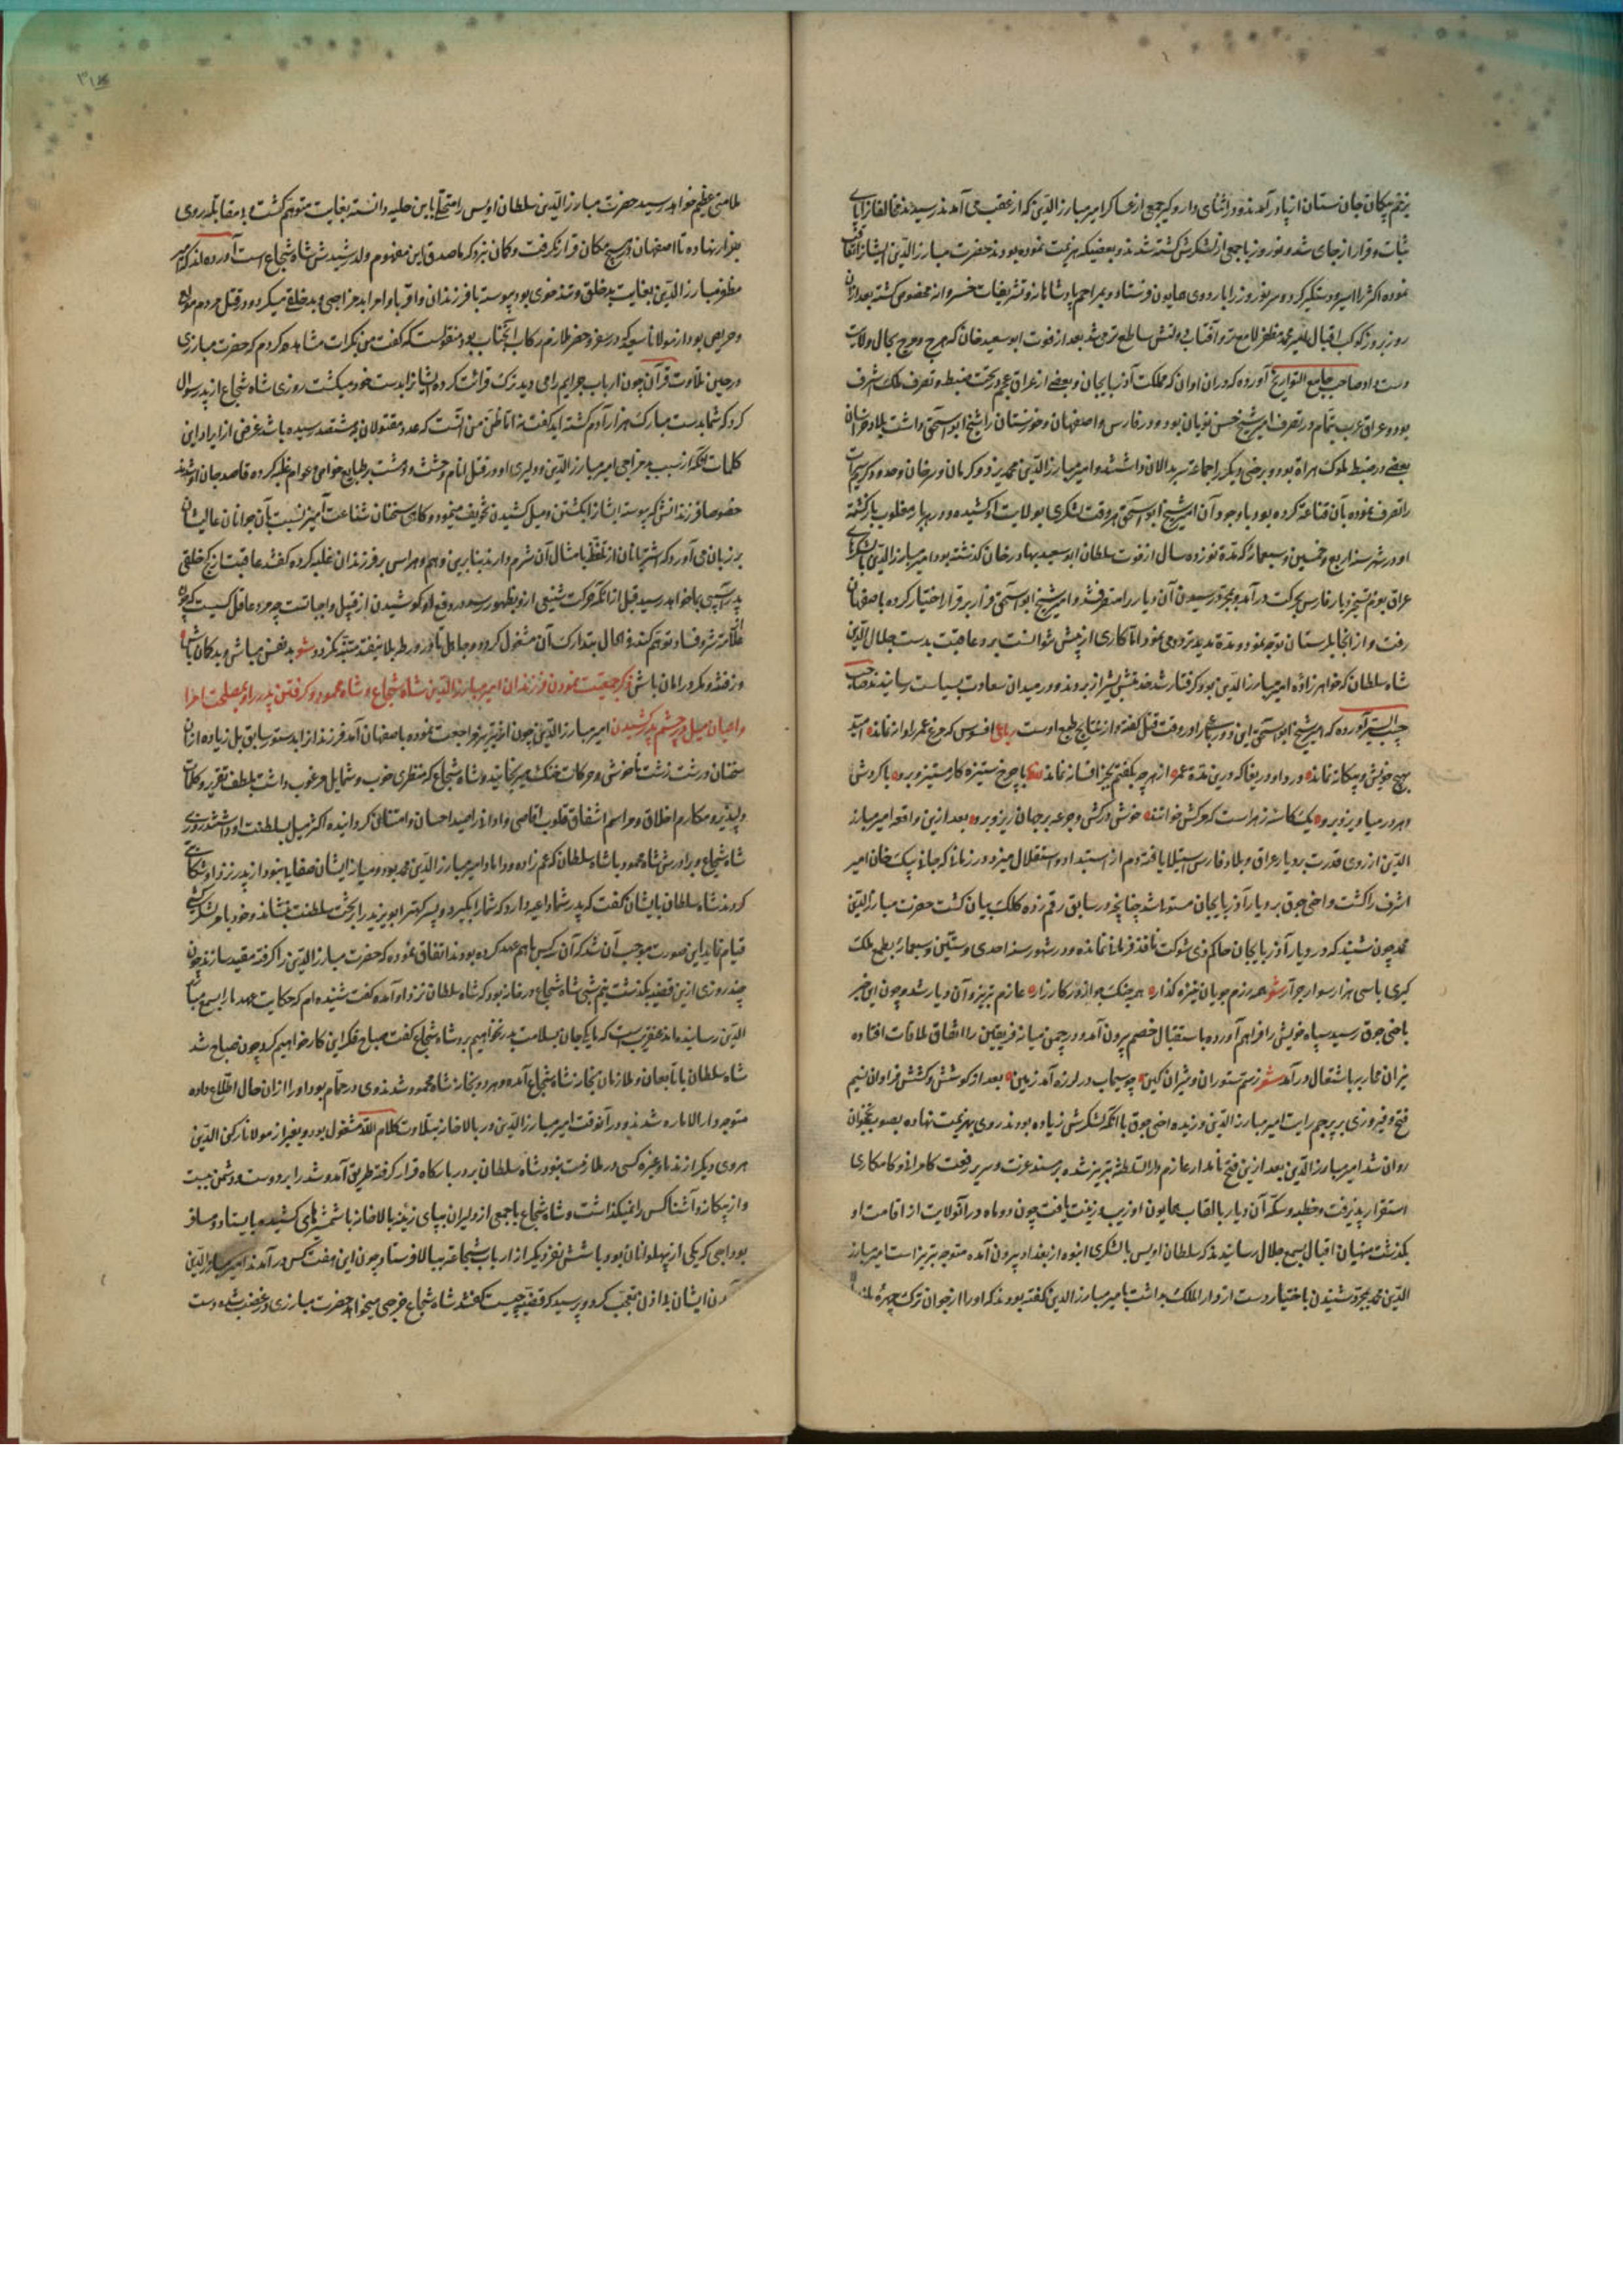 بزخم پیکان جان ستان از پا در آمدند و در اثنای دار و گیر جمعی از عساکر امیر مبارز الدین که از عقب می آمدند رسیدند مخالفانرا پای
ثبات و قرار از جای شد و نوروز با جمعی از لشکرش کشته شدند و بعضی که هزیمت نموده بودند حضرت مبارز الدین ایشانرا تعاقب
نموده اکثر را اسیر و دستگیر کرد و سر نوروز را باردوی همایون فرستاد و بمراحم پادشاهانه و تشریفات خسروانه مخصوص گشته بعد ازان
روز بروز کوکب اقبال امیر محمد مظفر لامع تر و آفتاب دولتش ساطع تر می شد بعد از فوت ابو سعید خان که هرج و مرج بحال ولایت
دست داد صاحب جامع التواریخ آورده که دران اوان که مملکت آذربایجان و بعضی از عراق عجم در تحت ضبط و تصرف ملک اشرف
بود و عراق عرب بتمام در تصرف امیر شیخ حسن نویان بود و در فارس و اصفهان و خوزستان را شیخ ابو اسحق داشت بلاد خراسان
بعضی در ضبط ملوک هراة بود و برخی دیگر را جماعة سربدالان داشتند و امیر مبارز الدین محمد یزد و کرمان و سیرجان و حدود گرمسیرات
را تصرف نموده بآن قناعة کرده بود با وجود آن امیر شیخ ابو اسحق هر وقت لشکری بولایت او کشیده و در هر بار مغلوب باز گشته
او در شهر سنه اربع و خمسین و سبعمائه که مدة نوزده سال از فوت سلطان ابو سعید بهادر خان گذشته بود امیر مبارز الدین با لشکرهای
عراق بعزم تسخیر دیار فارس بحرکت در آمد و بمجرد رسیدن آن دیار را متصرف شد و امیر شیخ ابو اسحق فرار بر قرار اختیار کرده باصفهان
رفت و از آنجا بلرستان توجه نمود و مدة مدید تردد می نمود اما کاری از پیش نتوانست برد و عاقبت بدست جلال الدین
شاه سلطان که خواهر زاده امیر مبارز الدین بود گرفتار شد خدمتش بشیراز بردند و در میدان سعادت بسیاست رسانیدند صاحب
حبیب السیر آورده که امیر شیخ ابو اسحق این دو رباعی را در وقت قتل گفته و از نتایج طبع اوست رباعی افسوس که مرغ عمر را دانه نماند امید
بهیچ خویش و بیگانه نماند درد ا و دریغا که درین مدة عمر از هر چه بگفتیم بجز افسانه نماند با چرخ ستیزه کار مستیز و برو با گردش
دهر در میاویز و برو یک کاسه زهر است که مرگش خوانند خوش درکش و جرعه بر جهان ریز و برو بعد ازین واقعه امیر مبارز
الدین از روی قدرت بر دیار عراق و بلاد فارس استیلا یافته دم از استبداد و استقلال میزد و در زمانه که جانی بیک خان امیر
اشرف را کشت و اخی جوق بر دیار آذربایجان مستولی شد چنانچه در سابق رقم زده کلک بیان گشت حضرت مبارز الدین
محمد چون شنید که در دیار آذربایجان حاکم ذی شوکت نافذ فرمان نمانده در شهور سنه احدی و ستین و سبعمائه بطمع ملک
گیری با سی هزار سوار جرار شعر همه رزم جویان نیزه گذار همه جنگ جو از در کارزار عازم تبریز و آن دیار شد و چون این خبر
باخی جوق رسید سپاه خویش را فراهم آورده باستقبال خصم بیرون آمد و در چمن میانه فریقین را اتفاق ملاقات افتاده
نیران محاربه باشتعال در آمد شعر ز سم ستوران و شیران کین چو سیماب در لرزه آمد زمین بعد از کوشش و کشش فراوان نسیم
فتح و فیروزی بر پرچم رایت امیر مبارز الدین وزیده اخی جوق با آنکه لشکرش زیاده بودند روی بهزیمت نهاده بصوب نخجوان
روان شد امیر مبارز الدین بعد ازین فتح نامدار عازم دار السلطنه تبریز شده بر مسند عزت و سریر رفعت کامرانی و کامکاری
استقرار پذیرفت و خطبه و سکه آن دیار بالقاب همایون او زیب و زینت یافت چون دو ماه در آنولایت از اقامت او
بگذشت منهیان اقبال بسمع جلال رسانیدند که سلطان اویس با لشکری انبوه از بغداد بیرون آمده متوجه تبریز است امیر مبارز
الدین محمد بمجرد شنیدن باختیار دست از دار الملک بداشت با امیر مبارز الدین گفته بودند که او را از جوان ترک چهره بلند
ملامتی عظیم خواهد رسید حضرت مبارز الدین سلطان اویس را متحلی باین حلیه دانسته بغایت متوهم گشت و بی مقابله روی
بفرار نهاده تا اصفهان در هیچ مکان قرار نگرفت و گمان نبرد که ماصدق این مفهوم ولد رشیدش شاه شجاع است آورده اند که امیر
مظفر مبارز الدین بغایت بد خلق و تند خوی بود پیوسته با فرزندان و اقربا و امرا بد مزاجی و بد خلقی میکرد و در قتل مردم مولع
و حریص بود از مولانا سعید که در سفر و حضر ملازم رکاب آنجناب بود منقولست که گفت من بکرات مشاهده کردم که حضرت مبارزی
در حین تلاوت قرآن چون ارباب جرایم را می دید ترک قرائت کرده ایشانرا بدست خود میکشت روزی شاه شجاع از پدر سوال
کرد که شما بدست مبارک هزار آدم کشته اید گفت نه اما ظن من آنست که عدد مقتولان بهشتصد رسیده باشد غرض از ایراد این
کلمات آنکه از سبب بد مزاجی امیر مبارز الدین و دلیری او در قتل انام وحشت و دهشت بر طبایع خواص و عوام غلبه کرده قاصد جان او شدند
خصوصا فرزندانش که پیوسته ایشانرا بکشتن و میل کشیدن تخویف مینمود و گاهی سخنان شناعت آمیز نسبت بآن جوانان عالیشان
بر زبان می آورد که اشترانان از تلفظ بامثال آن شرم دارند بنابرین وهم و هراس بر فرزندان غلبه کرده گفتند عاقبت از کج خلقی
پدر آسیبی بما خواهد رسید قبل از آنکه حرکت شنیعی ازو بظهور رسد در دفع او کوشیدن از قبیل واجباتست چه مرد عاقل کسیست که چون
علامت شر و فساد توهم کند فی الحال بتدارک آن مشغول گردد و جاهل تا در ورطه بلا نیفتد متنبه نگردد شعر بد نفس مباش و بد گمان باش
وز فتنه و مکر در امان باش ذکر جمعیت نمودن فرزندان امیر مبارز الدین شاه شجاع و شاه محمود و گرفتن پدر را و بمصلحت امرا
و اعیان میل در چشم پدر کشیدن امیر مبارز الدین چون از تبریز مراجعت نموده باصفهان آمد فرزندانرا بدستور سابق بل زیاده ازان
سخنان درشت زشت ناخوش و حرکات خنک میرنجانید و شاه شجاع که منظری خوب و شمایل مرغوب داشت بلطف تقریر و کلمات
دلپذیر و مکارم اخلاق و مراسم اشفاق قلوب اقاصی و ادانی را صید احسان و امتنان گردانیده اکثر میل بسلطنت او داشتند روزی
شاه شجاع و برادرش شاه محمود با شاه سلطان که عم زاده و داماد امیر مبارز الدین محمد بود و میان ایشان صفایی نبود از پدر نزد او شکایتی
کردند شاه سلطان بایشان گفت که پدر شما داعیه دارد که شما را بگیرد و پسر کهتر ابو یزید را بتخت سلطنت نشاند و خود بامر لشکر کشی
قیام نماید این صورت موجب آن شد که آن سه کس با هم عهد کرده بودند اتفاق نموده که حضرت مبارز الدین را گرفته مقید سازند چون
چند روزی ازین قضیه بگذشت نیم شبی شاه شجاع در خانه بود که شاه سلطان نزد او آمده گفت شنیده ام که حکایت عهد ما را بسمع مبارز
الدین رسانیده اند عنقریبست که ما یک جان بسلامت بدر نخواهیم برد شاه شجاع گفت صباح فکر این کار خواهیم کرد چون صباح شد
شاه سلطان با تابعان و ملازمان بخانه شاه شجاع آمده و هر دو بخانه شاه محمود شدند وی در حمام بود او را ازان حال اطلاع داده
متوجه دار الاماره شدند و در آنوقت امیر مبارز الدین در بالا خانه بتلاوت کلام الله مشغول بود و بغیر از مولانا رکن الدین
هروی دیگر از ندما و غیره کسی در ملازمت نبود شاه سلطان بر در بارگاه قرار گرفته طریق آمد و شد را بر دوست و دشمن ببست
و از بیگانه و آشنا کس را نمیگذاشت و شاه شجاع با جمعی از دلیران بپای زینه بالا خانه با شمشیرهای کشیده بایستاد و مسافر
بوداجی که یکی از پهلوانان بود با شش نفر دیگر از ارباب شجاعة ببالا فرستاد چون این هفت کس در آمدند امیر مبارز الدین
ایشان بی اذن تعجب کرد و پرسید که قضیه چیست گفتند شاه شجاع خرجی میخواهد حضرت مبارزی در غضب شده دست